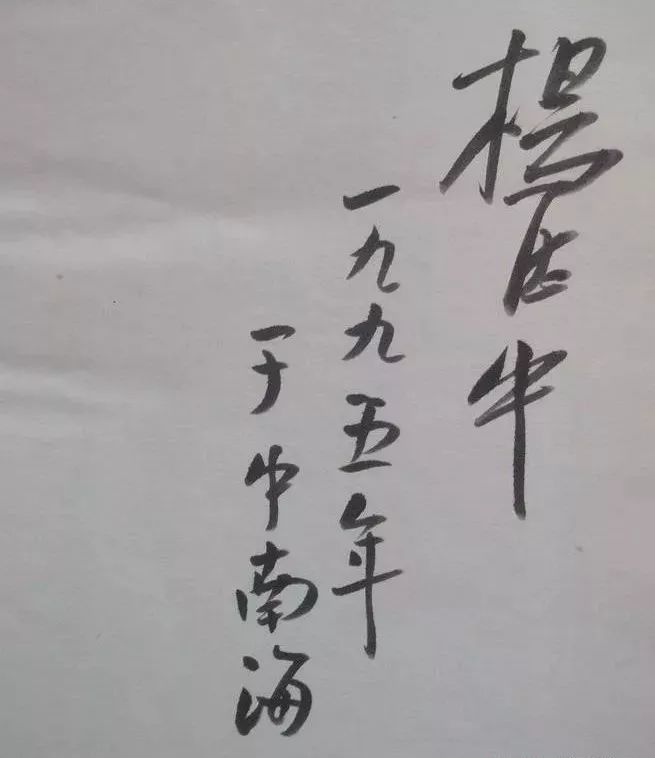 楊
一九九五年
于中南海